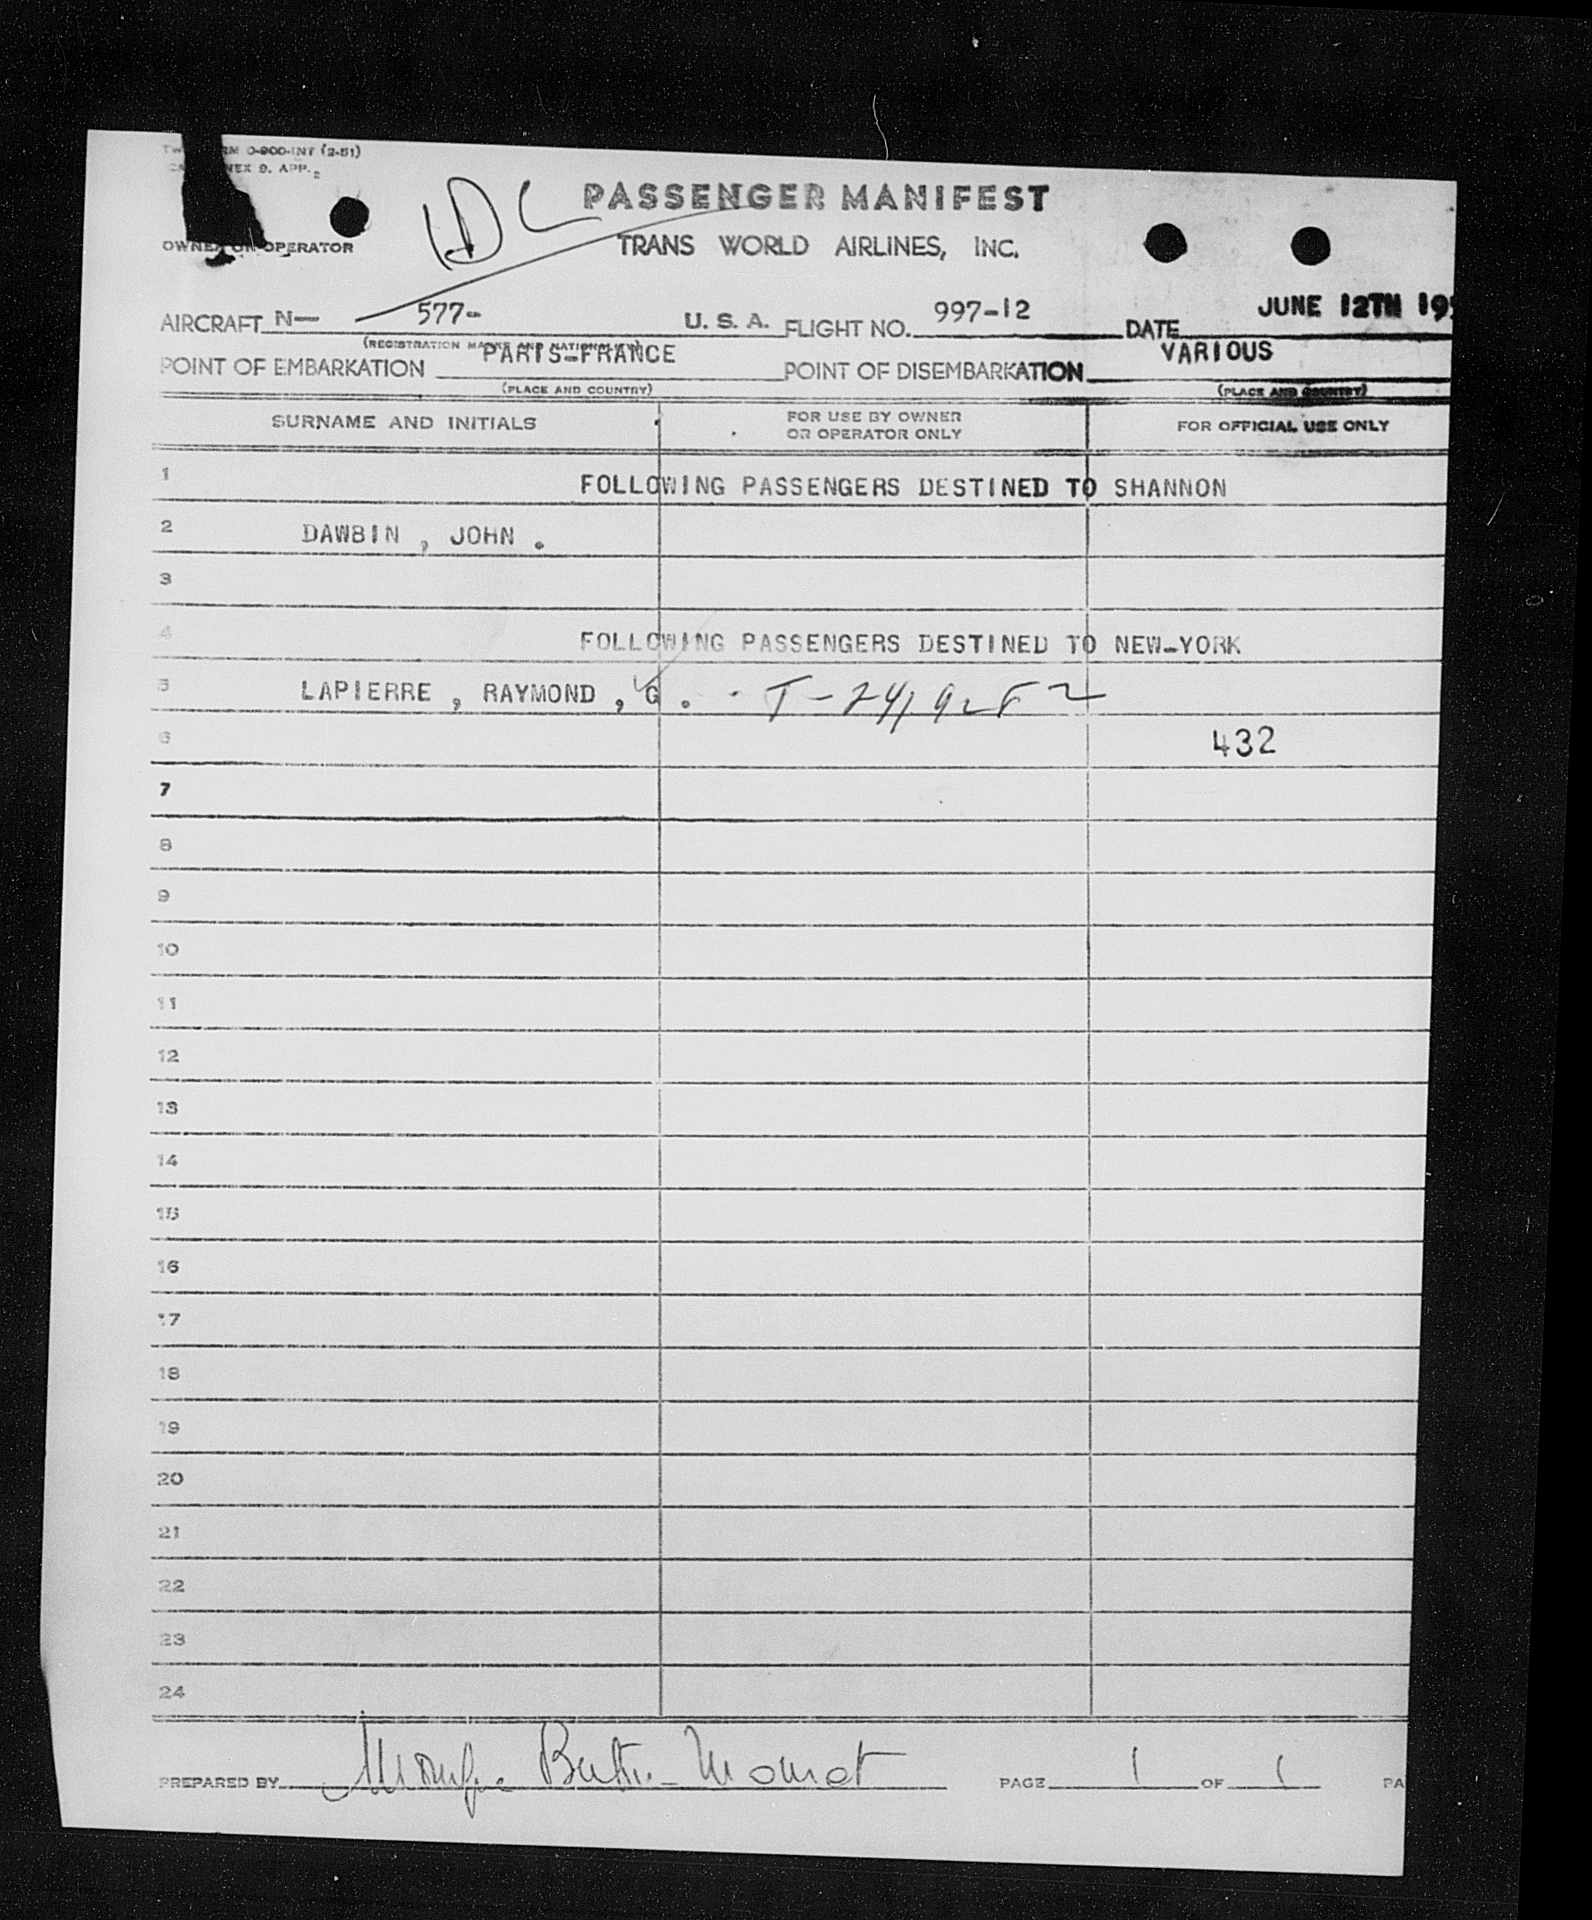 RM 0-900-INT (2-51)
NEX 9. APP. 2
IDL
PASSENGER MANIFEST
OWNER OR OPERATOR
TRANS WORLD AIRLINES, INC.
AIRCRAFT N— 577- U. S. A. FLIGHT NO. 997-12 DATE JUNE 12TH 19
(REGISTRATION MARKS AND NATIONALITY)
POINT OF EMBARKATION PARIS-FRANCE POINT OF DISEMBARKATION VARIOUS
(PLACE AND COUNTRY) (PLACE AND COUNTRY)
SURNAME AND INITIALS FOR USE BY OWNER OR OPERATOR ONLY FOR OFFICIAL USE ONLY
1 FOLLOWING PASSENGERS DESTINED TO SHANNON
2 DAWBIN , JOHN .
3
4 FOLLOWING PASSENGERS DESTINED TO NEW-YORK
5 LAPIERRE , RAYMOND , G .
6 432
7
8
9
10
11
12
13
14
15
16
17
18
19
20
21
22
23
24
PREPARED BY PAGE 1 OF 1 PA